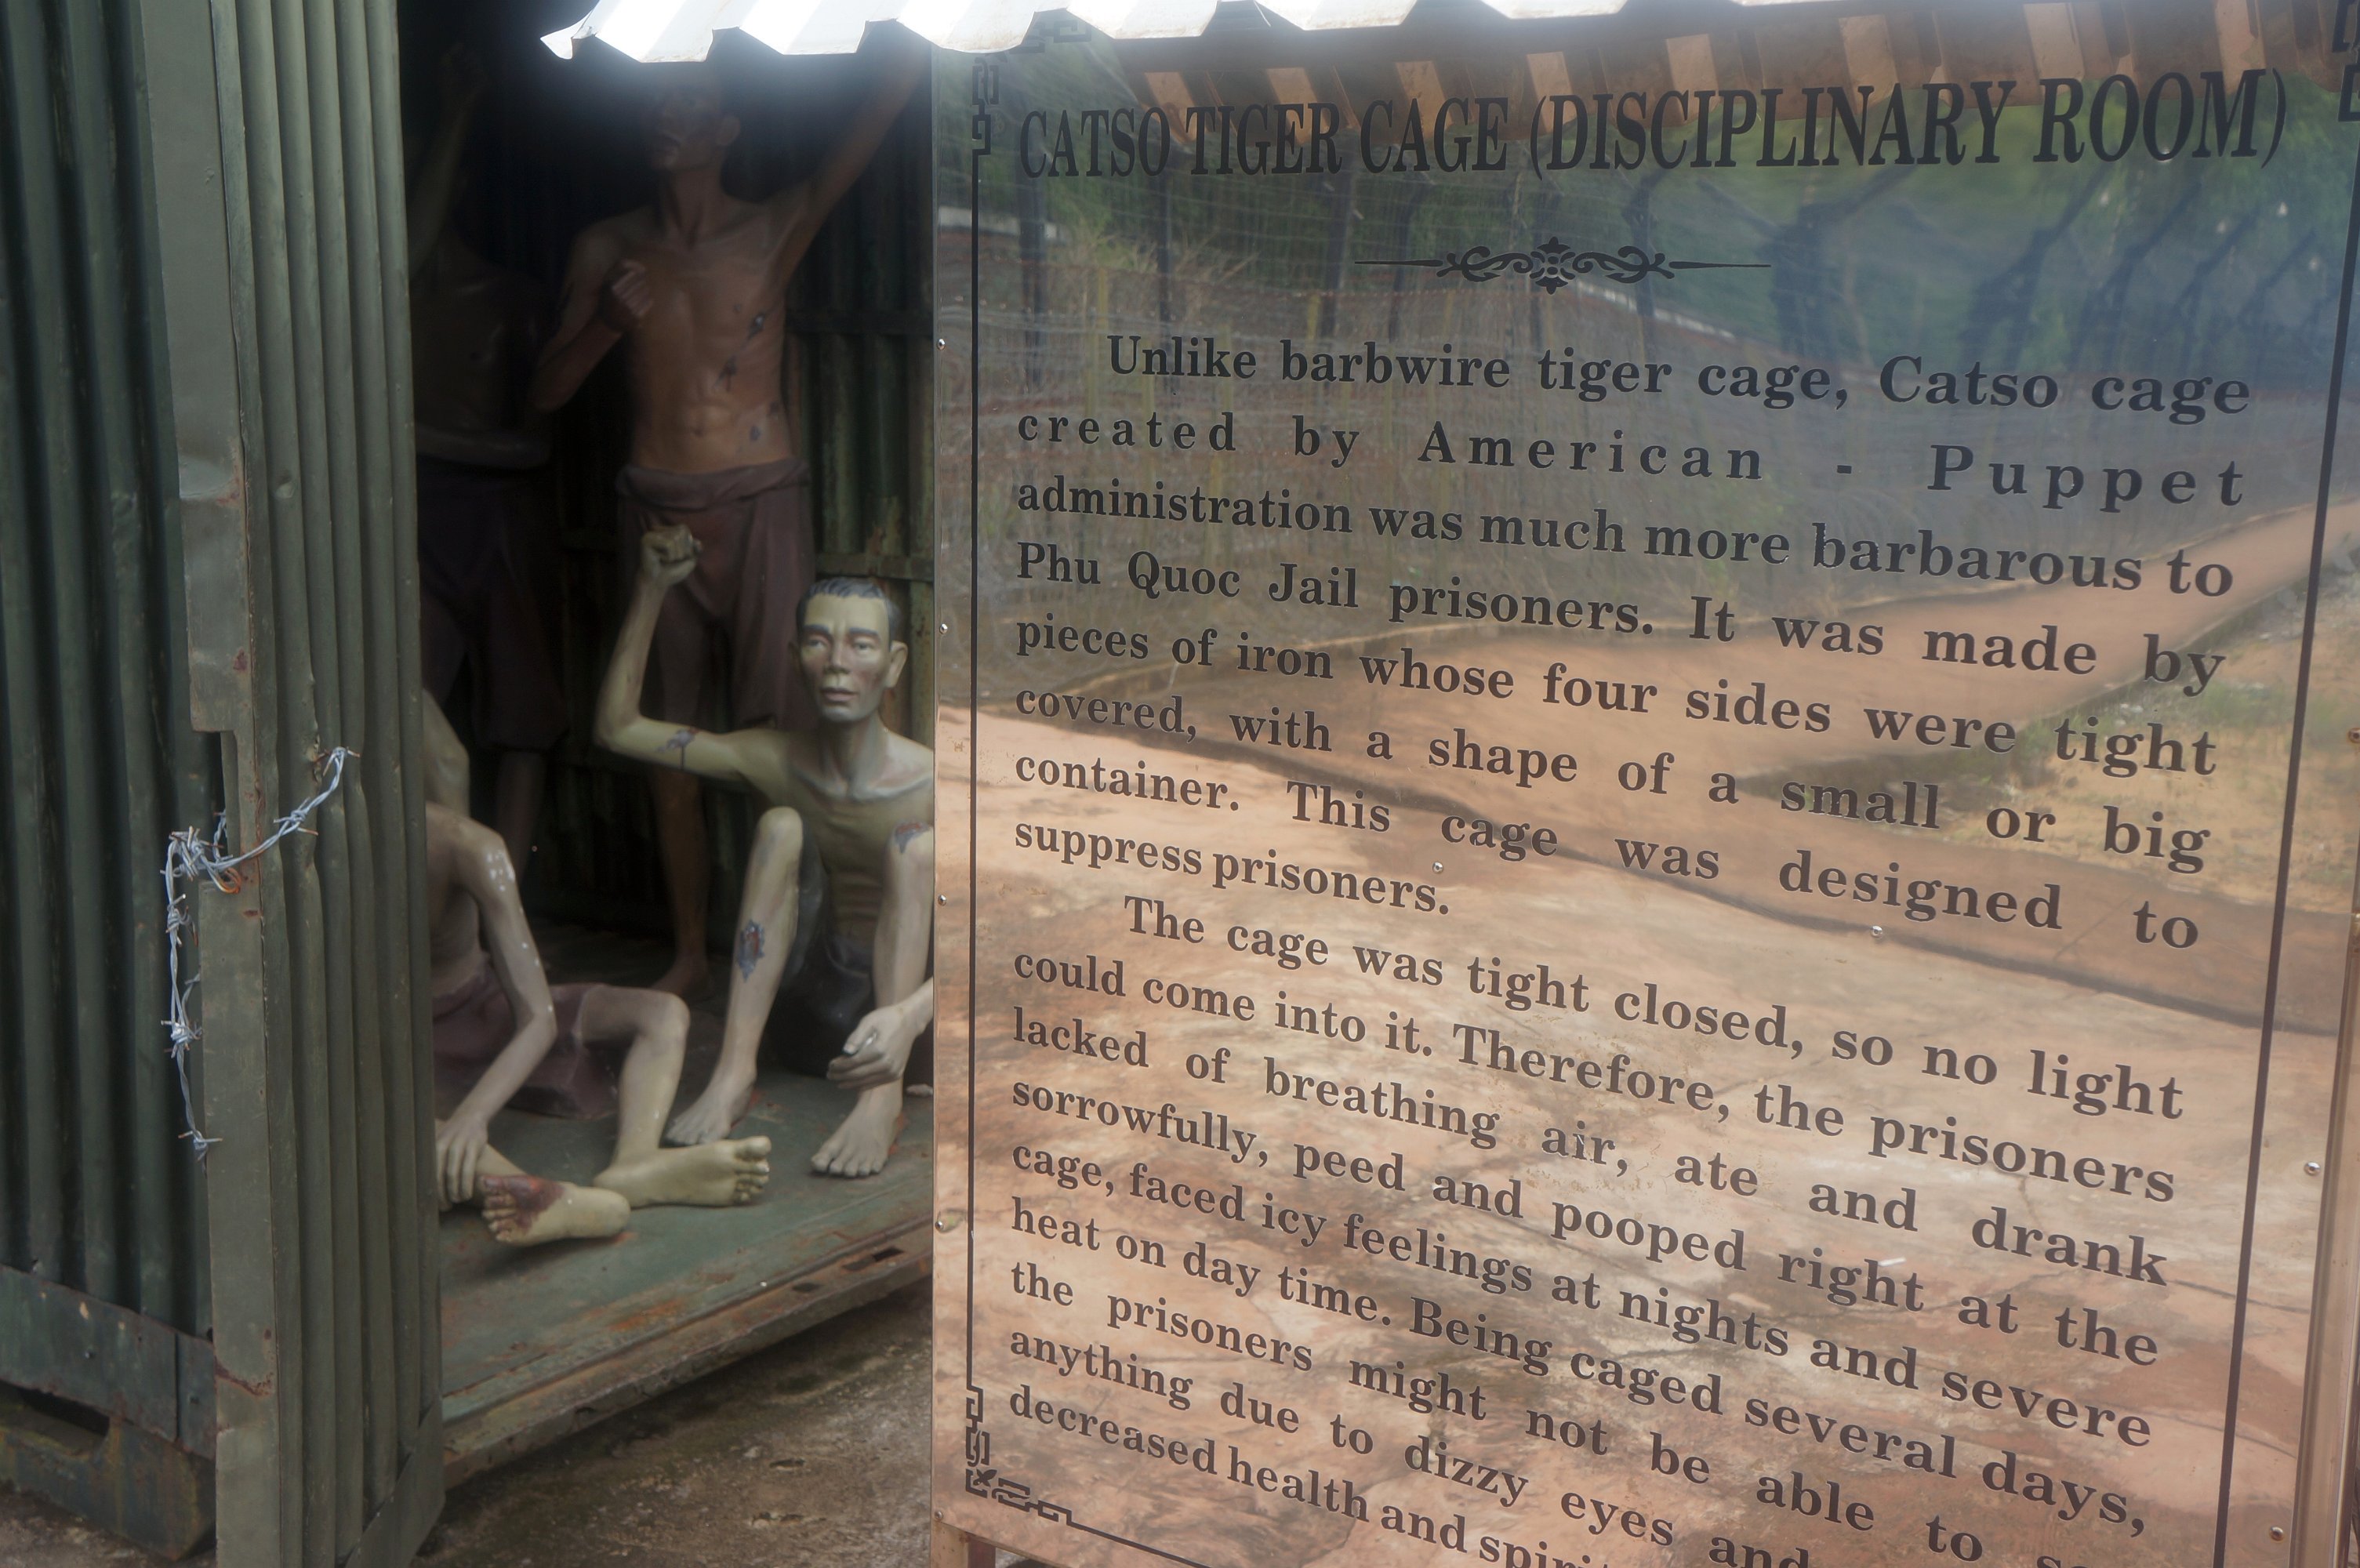 CATSO TIGER CAGE (DISCIPLINARY ROOM)
Unlike barbwire tiger cage, Catso cage
created by American - Puppet
administration was much more barbarous to
Phu Quoc Jail prisoners. It was made by
pieces of iron whose four sides were tight
covered, with a shape of a small or big
container. This cage was designed to
suppress prisoners.
The cage was tight closed, so no light
could come into it. Therefore, the prisoners
lacked of breathing air, ate and drank
sorrowfully, peed and pooped right at the
cage, faced icy feelings at nights and severe
heat on day time. Being caged several days,
the prisoners might not be able to
anything due to dizzy eyes and
decreased health and